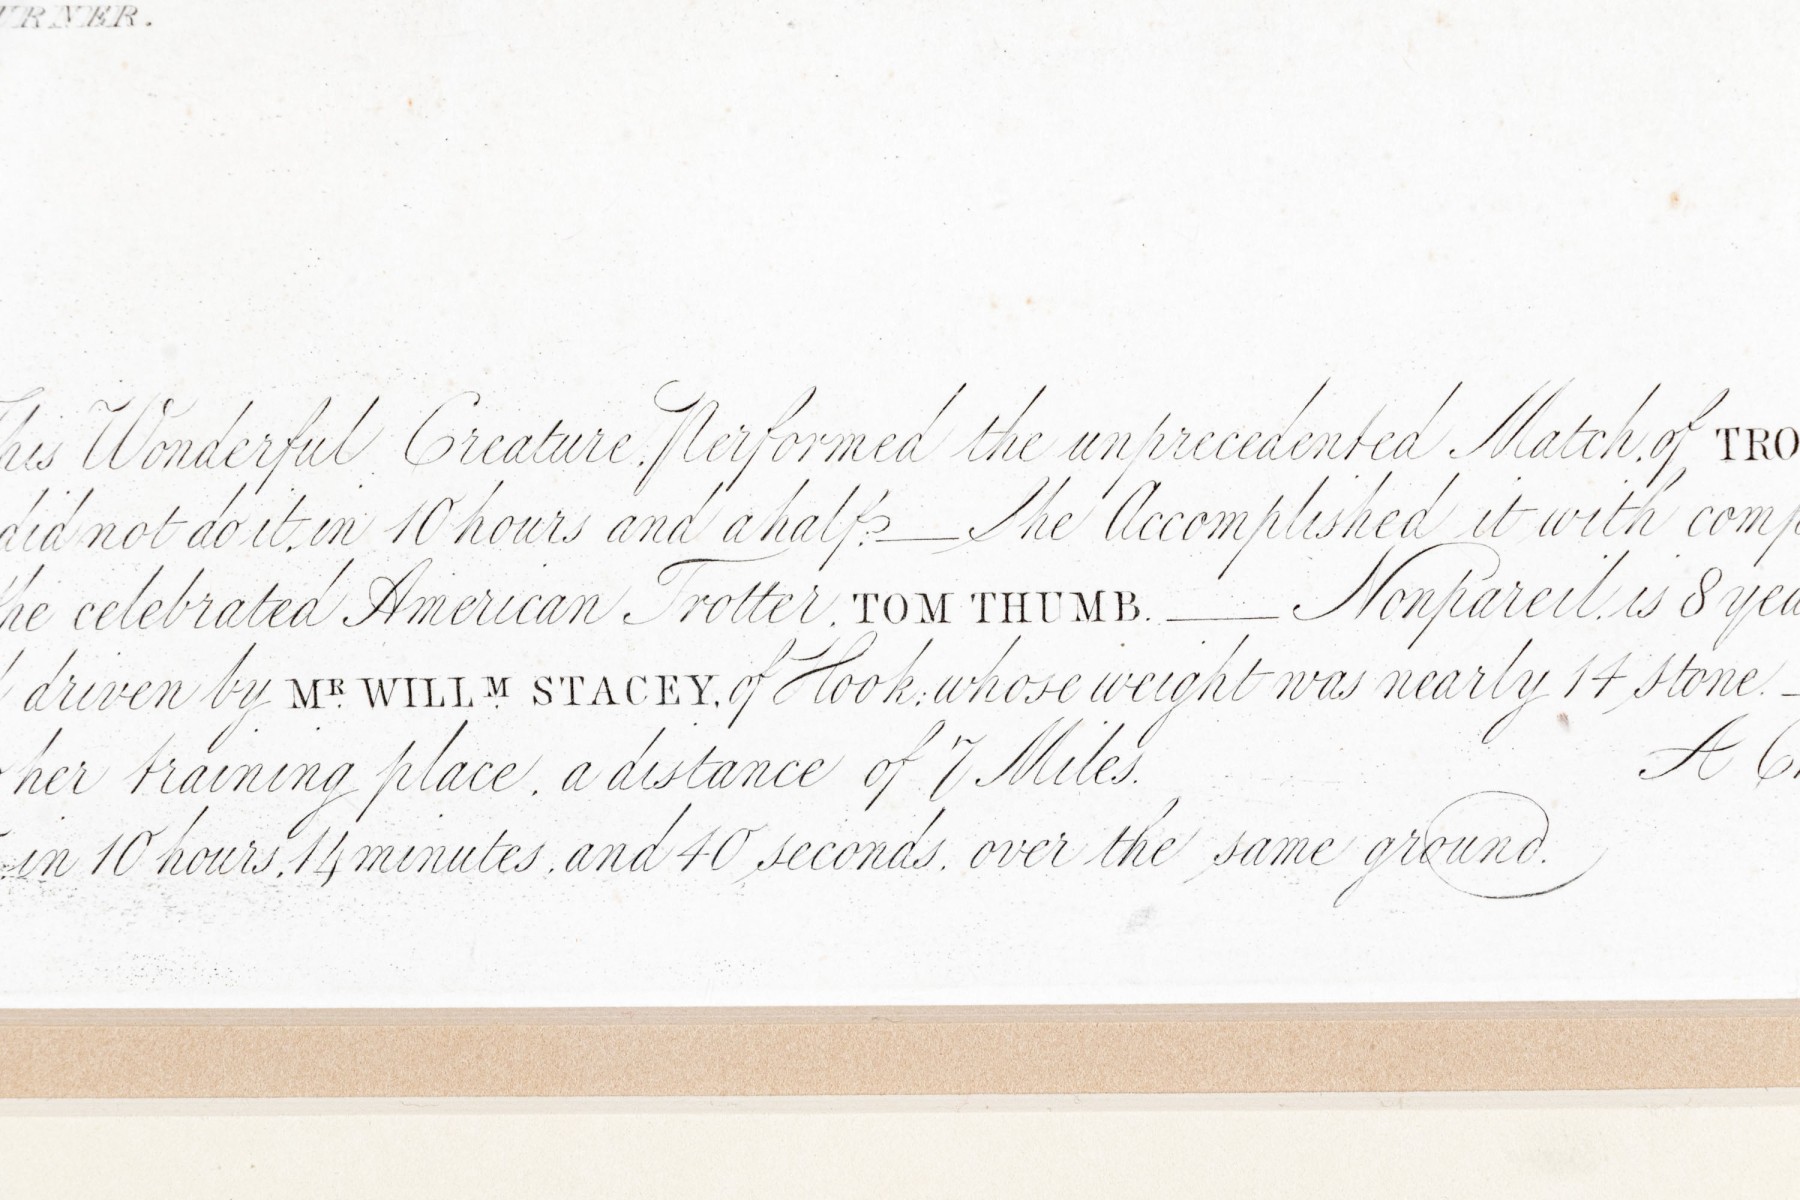 URNER.
This Wonderful Creature, Performed the unprecedented Match, of TRO
did not do it, in 10 hours and a half? — She Accomplished it with comp
the celebrated American Trotter, TOM THUMB. — Nonpareil, is 8 yea
driven by MR. WILLM. STACEY, of Hook; whose weight was nearly 14 Stone. —
her training place, a distance of 7 Miles. A Ch
in 10 hours, 14 minutes, and 40 seconds, over the same ground.